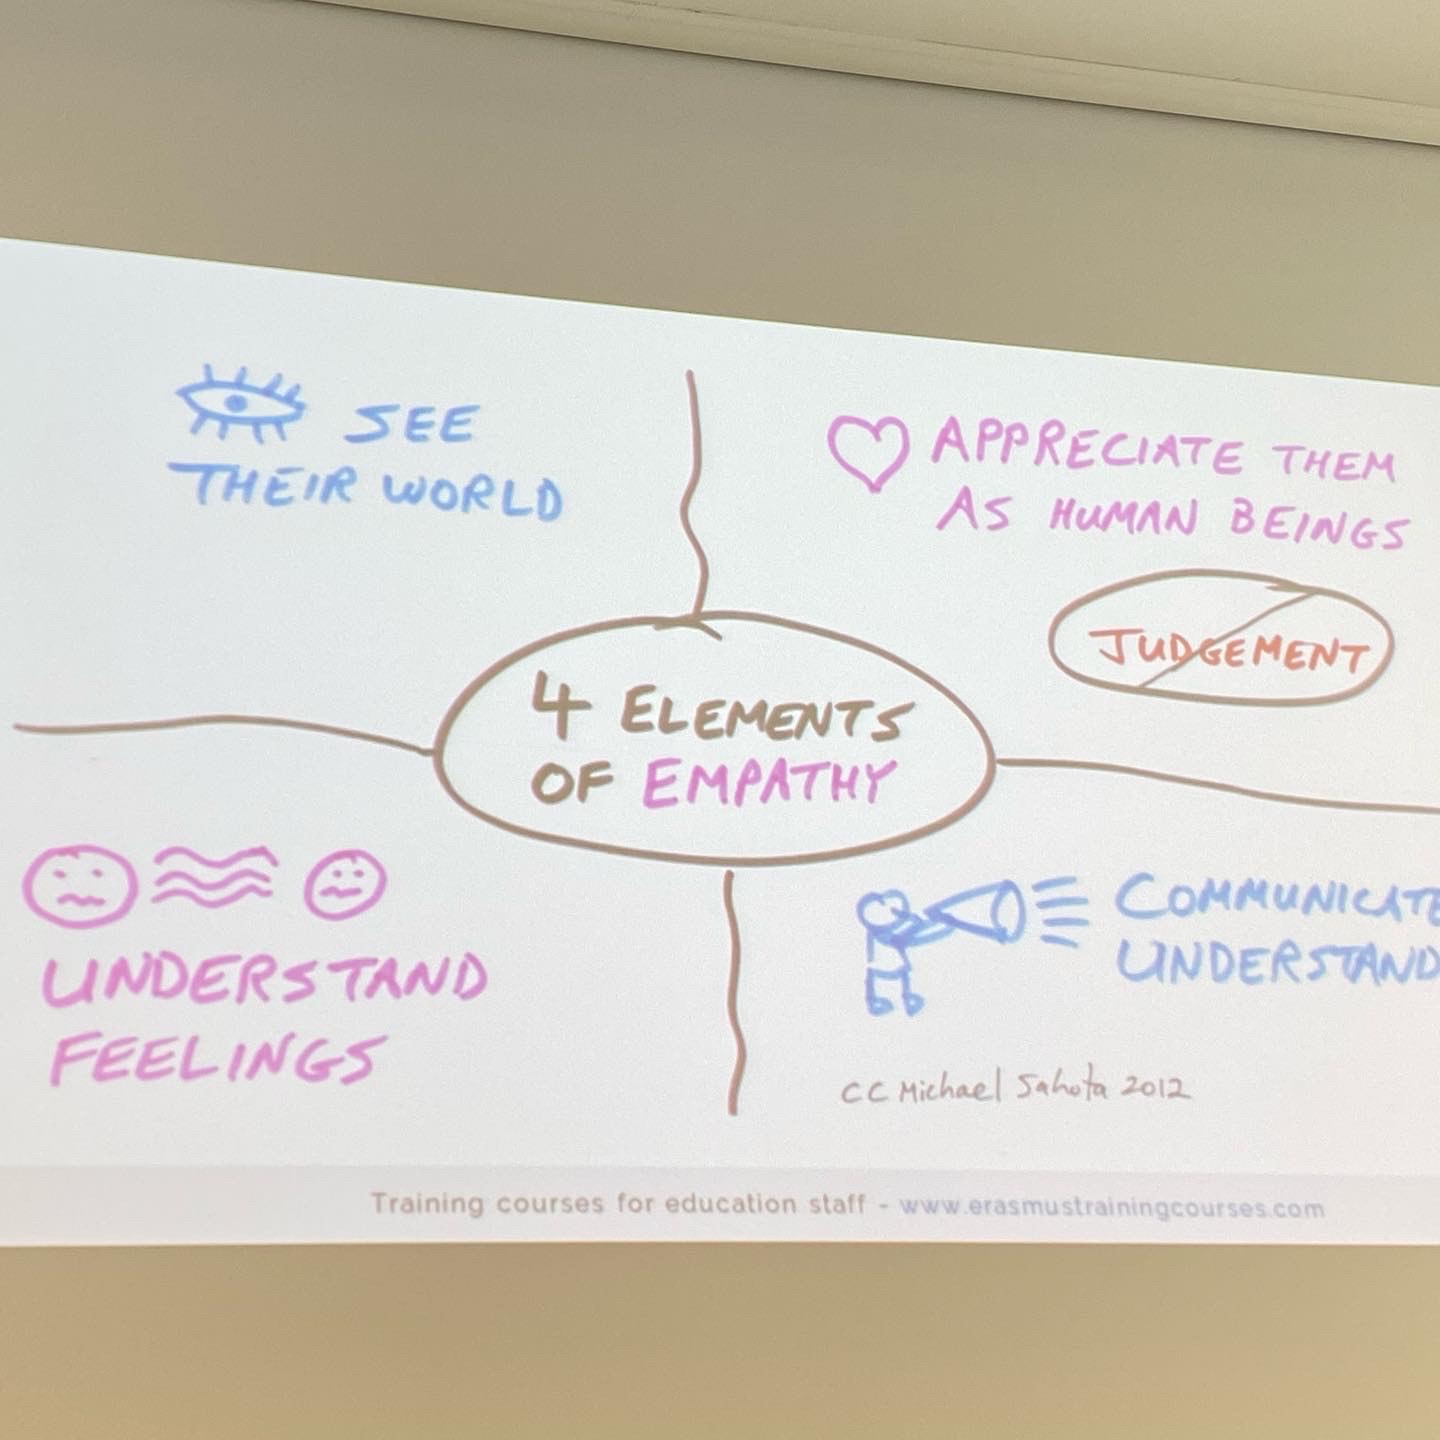 SEE
THEIR WORLD
APPRECIATE THEM
AS HUMAN BEINGS
JUDGEMENT
4 ELEMENTS
OF EMPATHY
UNDERSTAND
FEELINGS
COMMUNICATE
UNDERSTAND
CC Michael Sahota 2012
Training courses for education staff - www.erasmustrainingcourses.com